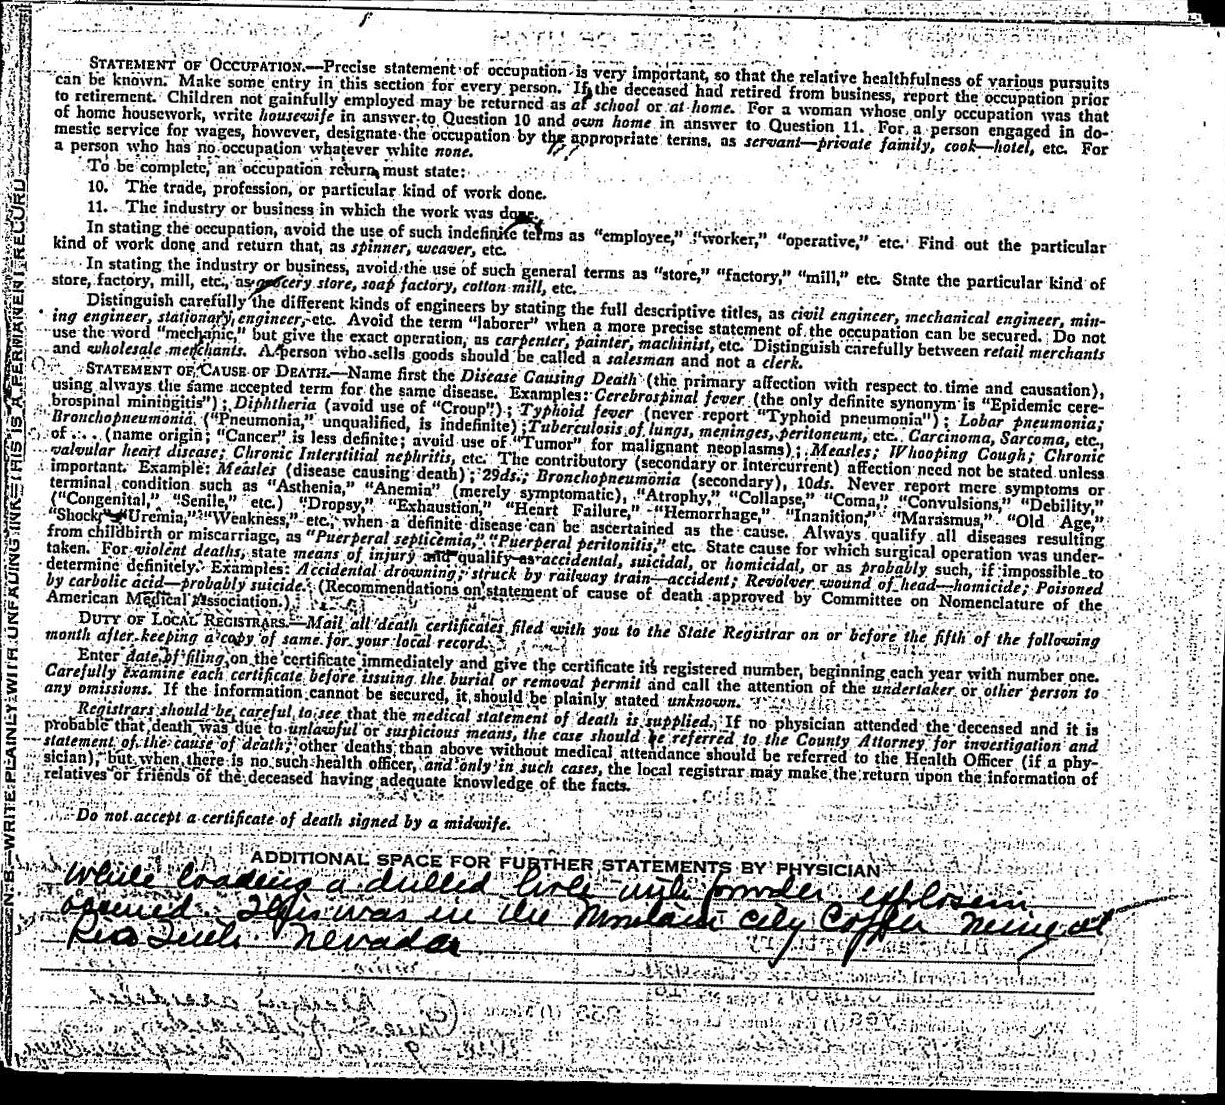 N. B.—WRITE PLAINLY WITH UNFADING INK—THIS IS A PERMANENT RECORD
STATEMENT OF OCCUPATION.—Precise statement of occupation is very important, so that the relative healthfulness of various pursuits
can be known. Make some entry in this section for every person. If the deceased had retired from business, report the occupation prior
to retirement. Children not gainfully employed may be returned as at school or at home. For a woman whose only occupation was that
of home housework, write housewife in answer to Question 10 and own home in answer to Question 11. For a person engaged in do-
mestic service for wages, however, designate the occupation by the appropriate terms, as servant—private family, cook—hotel, etc. For
a person who has no occupation whatever white none.
To be complete, an occupation return must state:
10. The trade, profession, or particular kind of work done.
11. The industry or business in which the work was done.
In stating the occupation, avoid the use of such indefinite terms as "employee," "worker," "operative," etc. Find out the particular
kind of work done and return that, as spinner, weaver, etc.
In stating the industry or business, avoid the use of such general terms as "store," "factory," "mill," etc. State the particular kind of
store, factory, mill, etc., as grocery store, soap factory, cotton mill, etc.
Distinguish carefully the different kinds of engineers by stating the full descriptive titles, as civil engineer, mechanical engineer, min-
ing engineer, stationary engineer, etc. Avoid the term "laborer" when a more precise statement of the occupation can be secured. Do not
use the word "mechanic," but give the exact operation, as carpenter, painter, machinist, etc. Distinguish carefully between retail merchants
and wholesale merchants. A person who sells goods should be called a salesman and not a clerk.
STATEMENT OF CAUSE OF DEATH.—Name first the Disease Causing Death (the primary affection with respect to time and causation),
using always the same accepted term for the same disease. Examples: Cerebrospinal fever (the only definite synonym is "Epidemic cere-
brospinal miningitis"); Diphtheria (avoid use of "Croup"); Typhoid fever (never report "Typhoid pneumonia"); Lobar pneumonia;
Bronchopneumonia ("Pneumonia," unqualified, is indefinite); Tuberculosis of lungs, meninges, peritoneum, etc. Carcinoma, Sarcoma, etc.,
of ... (name origin; "Cancer" is less definite; avoid use of "Tumor" for malignant neoplasms); Measles; Whooping Cough; Chronic
valvular heart disease; Chronic Interstitial nephritis, etc. The contributory (secondary or intercurrent) affection need not be stated unless
important. Example: Measles (disease causing death); 29ds.; Bronchopneumonia (secondary), 10ds. Never report mere symptoms or
terminal condition such as "Asthenia," "Anemia" (merely symptomatic), "Atrophy," "Collapse," "Coma," "Convulsions," "Debility,"
("Congenital," "Senile," etc.) "Dropsy," "Exhaustion," "Heart Failure," "Hemorrhage," "Inanition," "Marasmus," "Old Age,"
"Shock," "Uremia," "Weakness," etc., when a definite disease can be ascertained as the cause. Always qualify all diseases resulting
from childbirth or miscarriage, as "Puerperal septicemia," "Puerperal peritonitis," etc. State cause for which surgical operation was under-
taken. For violent deaths, state means of injury and qualify as accidental, suicidal, or homicidal, or as probably such, if impossible to
determine definitely. Examples: Accidental drowning; struck by railway train—accident; Revolver wound of head—homicide; Poisoned
by carbolic acid—probably suicide. (Recommendations on statement of cause of death approved by Committee on Nomenclature of the
American Medical Association.)
DUTY OF LOCAL REGISTRARS.—Mail all death certificates filed with you to the State Registrar on or before the fifth of the following
month after keeping a copy of same for your local record.
Enter date of filing on the certificate immediately and give the certificate its registered number, beginning each year with number one.
Carefully examine each certificate before issuing the burial or removal permit and call the attention of the undertaker or other person to
any omissions. If the information cannot be secured, it should be plainly stated unknown.
Registrars should be careful to see that the medical statement of death is supplied. If no physician attended the deceased and it is
probable that death was due to unlawful or suspicious means, the case should be referred to the County Attorney for investigation and
statement of the cause of death; other deaths than above without medical attendance should be referred to the Health Officer (if a phy-
sician), but when there is no such health officer, and only in such cases, the local registrar may make the return upon the information of
relatives or friends of the deceased having adequate knowledge of the facts.
Do not accept a certificate of death signed by a midwife.
ADDITIONAL SPACE FOR FURTHER STATEMENTS BY PHYSICIAN
While loading a drilled hole with powder explosion
occured. This was in the Mountain City Copper Mine at
Rio Tinto Nevada